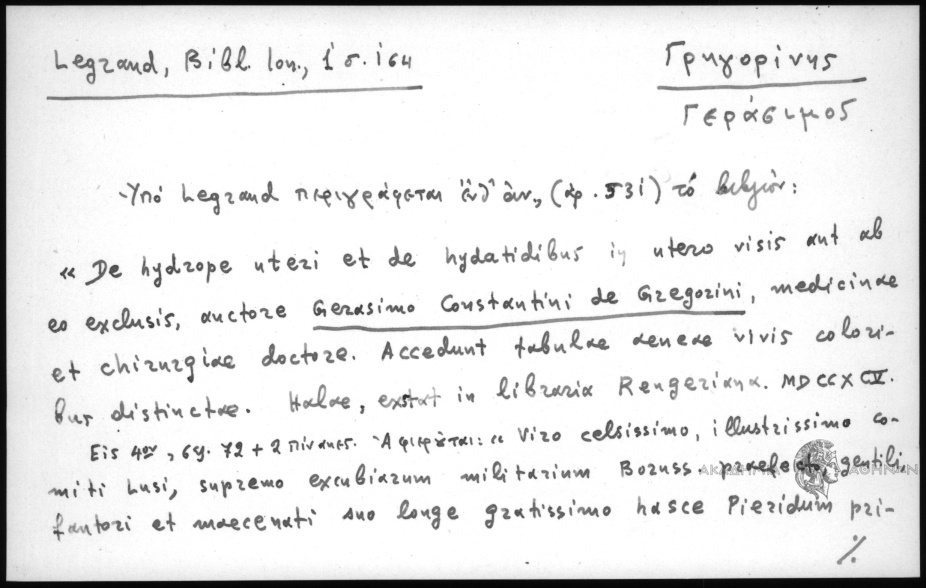 Legrand, Bibl. Ion., 1 σ. 164
Γρηγορίνης
Γεράσιμος
Ὑπό Legrand περιγράφεται (ἀρ. 531) τό βιβλίον:
« De hydrope uteri et de hydatidibus in utero visis aut ab
eo exclusis, auctore Gerasimo Constantini de Gregorini, medicinae
et chirurgiae doctore. Accedunt tabulae aeneae vivis colori-
bus distinctae. Halae, exstat in libraria Rengeriana. MDCCXCV.
Εἰς 4ον, σσ. 72 + 2 πίνακες. Ἀφιερῶται: « Viro celsissimo, illustrissimo co-
miti Lusi, supremo excubiarum militarium Boruss. praefecto, gentili,
fautori et maecenati suo longe gratissimo hasce Pieridum pri-
./.